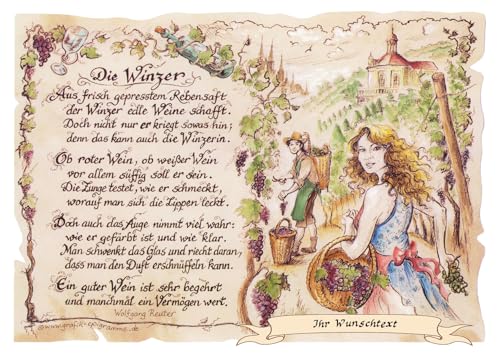 Die Winzer
Aus frisch gepresstem Rebensaft
der Winzer edle Weine schafft.
Doch nicht nur er kriegt sowas hin;
denn das kann auch die Winzerin.
Ob roter Wein, ob weißer Wein
vor allem süffig soll er sein.
Die Zunge testet, wie er schmeckt,
worauf man sich die Lippen leckt.
Doch auch das Auge nimmt viel wahr:
wie er gefärbt ist und wie klar.
Man schwenkt das Glas und riecht daran,
dass man den Duft erschnüffeln kann.
Ein guter Wein ist sehr begehrt
und manchmal ein Vermögen wert.
Wolfgang Reuter
©www.grafik-epigramme.de
Ihr Wunschtext